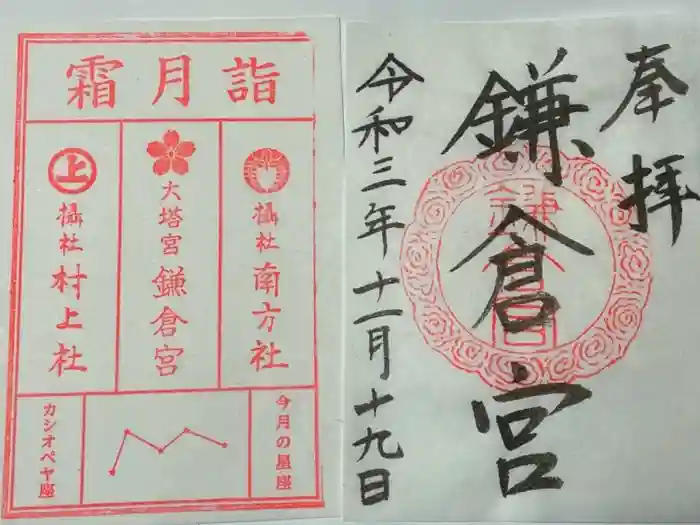 奉拝
鎌倉宮
鎌倉宮
令和三年十一月十九日
霜月詣
攝社 南方社
大塔宮 鎌倉宮
上
攝社 村上社
今月の星座
カシオペヤ座